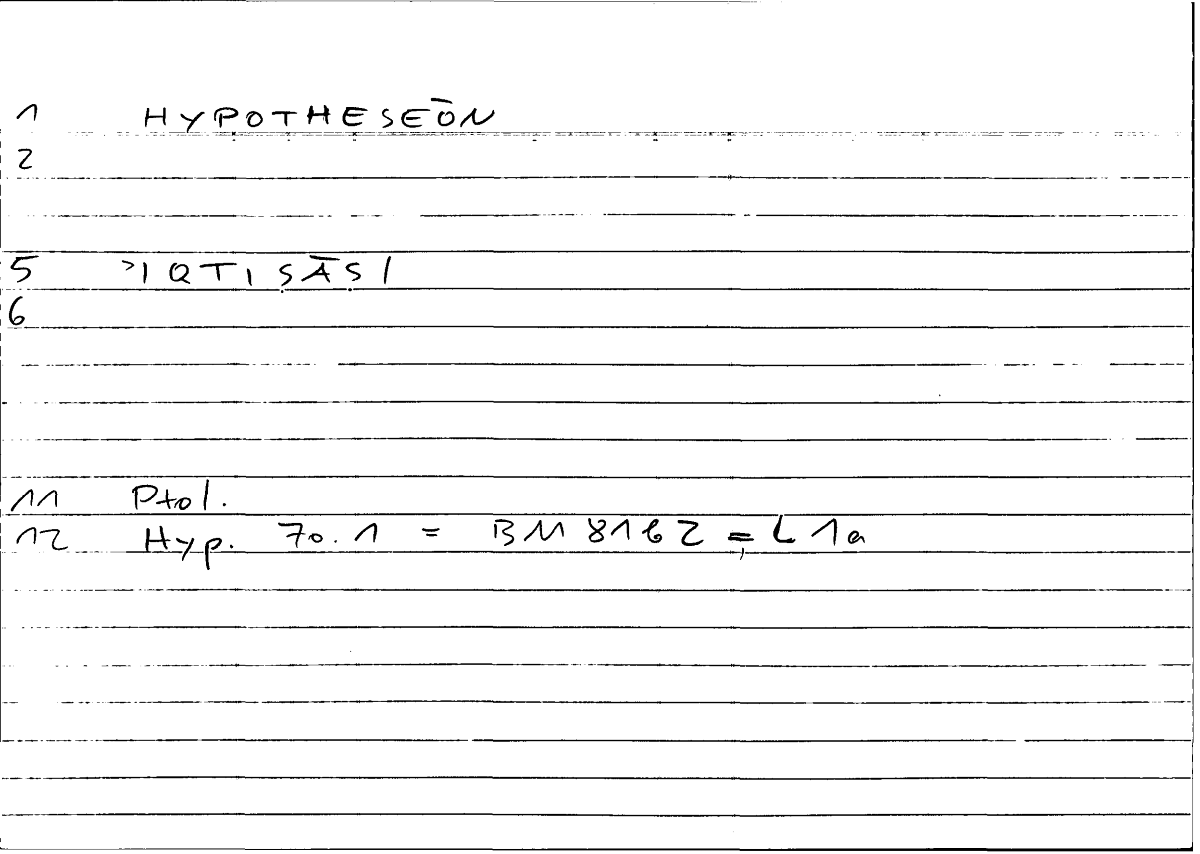 1 HYPOTHESEŌN
2
5 ʾIQTIṢĀṢI
6
11 Ptol.
12 Hyp. 70.1 = BM 8162 = L 1a